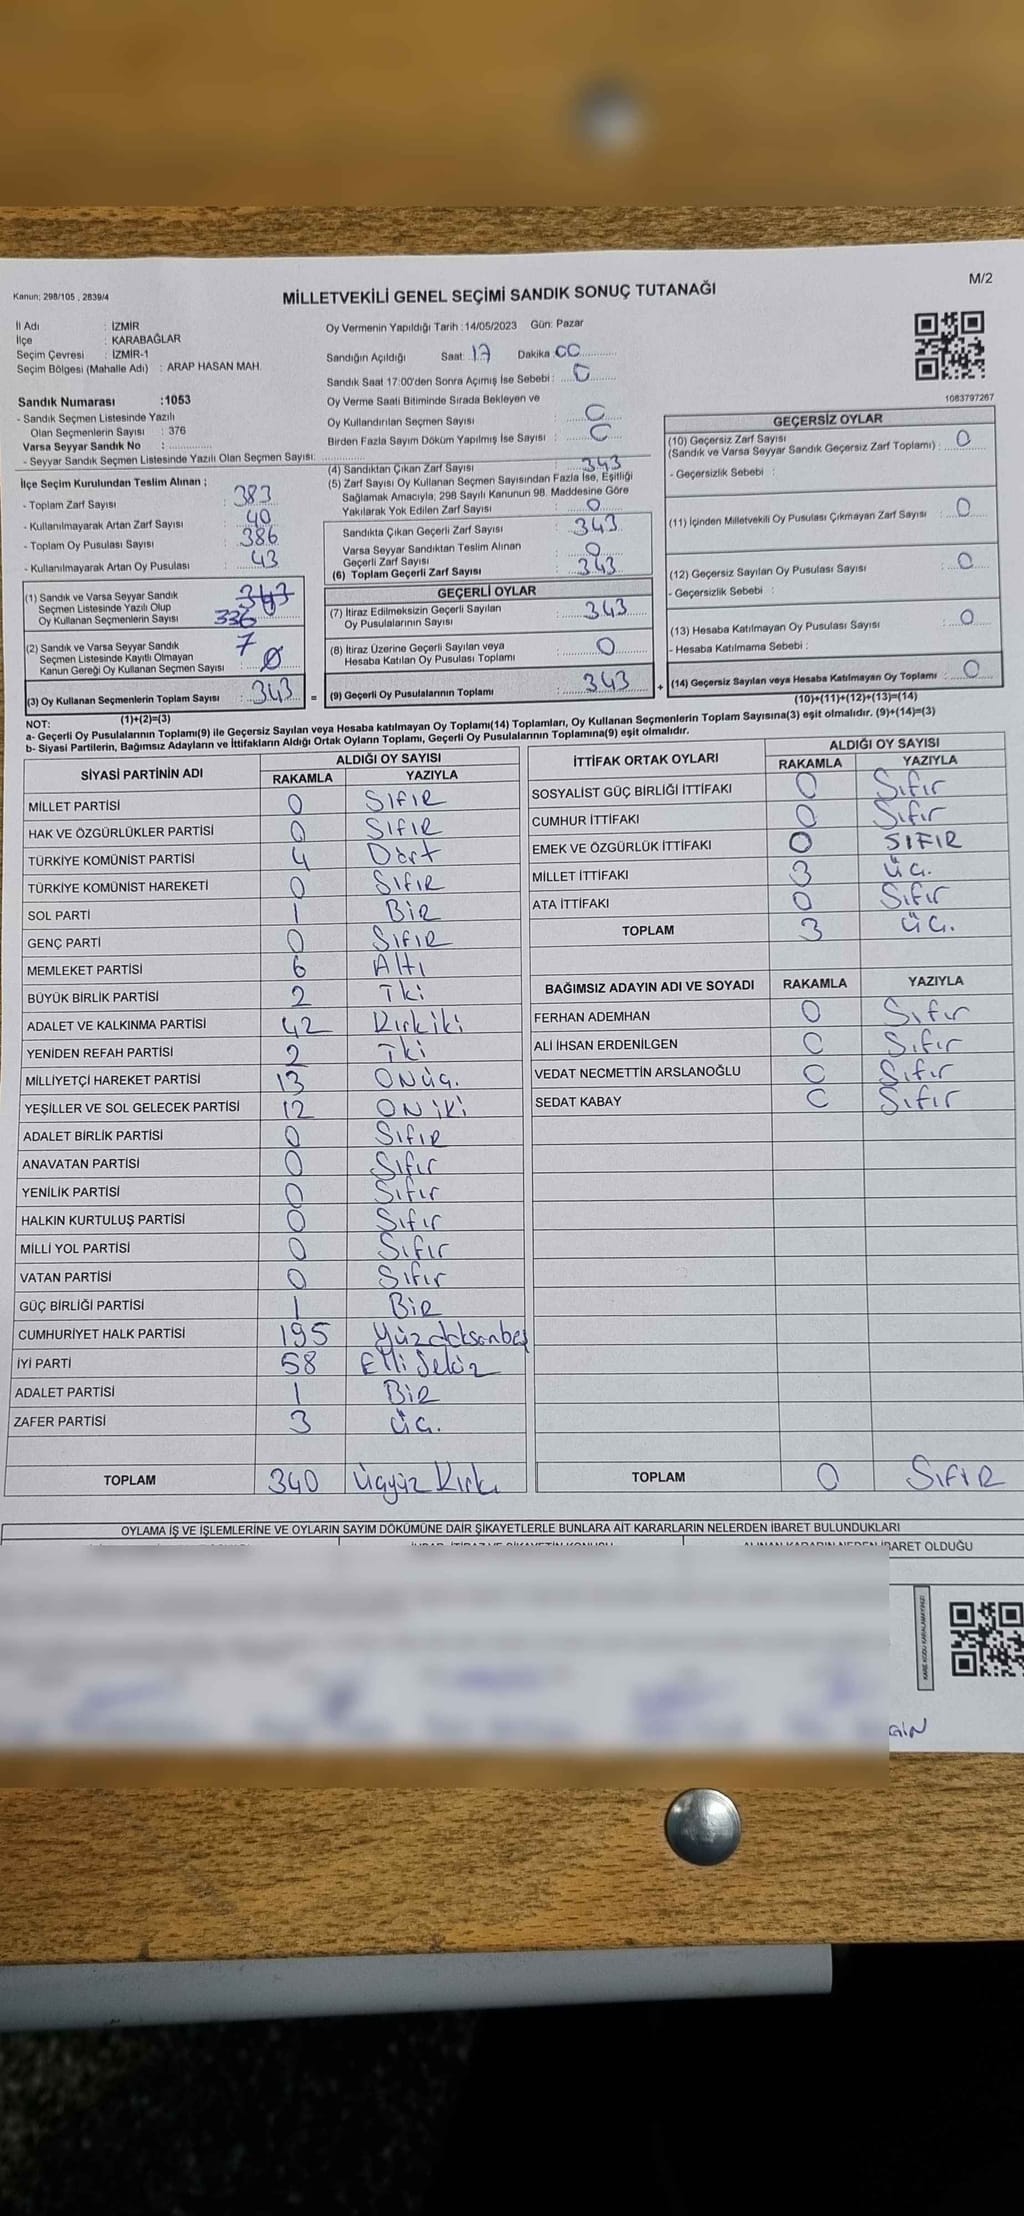 Kanun; 298/105 , 2839/4
MİLLETVEKİLİ GENEL SEÇİMİ SANDIK SONUÇ TUTANAĞI
M/2
İl Adı : İZMİR
İlçe : KARABAĞLAR
Seçim Çevresi : İZMİR-1
Seçim Bölgesi (Mahalle Adı) : ARAP HASAN MAH.
Oy Vermenin Yapıldığı Tarih :14/05/2023 Gün: Pazar
Sandığın Açıldığı Saat: 17 Dakika 00
Sandık Saat 17:00'den Sonra Açımış İse Sebebi : 0
Oy Verme Saati Bitiminde Sırada Bekleyen ve
Oy Kullandırılan Seçmen Sayısı : 0
Birden Fazla Sayım Döküm Yapılmış İse Sayısı : 0
1083797267
Sandık Numarası :1053
- Sandık Seçmen Listesinde Yazılı
Olan Seçmenlerin Sayısı : 376
Varsa Seyyar Sandık No :
- Seyyar Sandık Seçmen Listesinde Yazılı Olan Seçmen Sayısı:
İlçe Seçim Kurulundan Teslim Alınan ;
- Toplam Zarf Sayısı : 383
- Kullanılmayarak Artan Zarf Sayısı : 40
- Toplam Oy Pusulası Sayısı : 386
- Kullanılmayarak Artan Oy Pusulası : 43
(1) Sandık ve Varsa Seyyar Sandık
Seçmen Listesinde Yazılı Olup
Oy Kullanan Seçmenlerin Sayısı 343 336
(2) Sandık ve Varsa Seyyar Sandık
Seçmen Listesinde Kayıtlı Olmayan
Kanun Gereği Oy Kullanan Seçmen Sayısı : 7 0
(3) Oy Kullanan Seçmenlerin Toplam Sayısı : 343 =
(1)+(2)=(3)
(4) Sandıktan Çıkan Zarf Sayısı : 343
(5) Zarf Sayısı Oy Kullanan Seçmen Sayısından Fazla İse, Eşitliği
Sağlamak Amacıyla; 298 Sayılı Kanunun 98. Maddesine Göre
Yakılarak Yok Edilen Zarf Sayısı : 0
Sandıkta Çıkan Geçerli Zarf Sayısı : 343
Varsa Seyyar Sandıktan Teslim Alınan
Geçerli Zarf Sayısı : 0
(6) Toplam Geçerli Zarf Sayısı : 343
GEÇERLİ OYLAR
(7) İtiraz Edilmeksizin Geçerli Sayılan
Oy Pusulalarının Sayısı : 343
(8) İtiraz Üzerine Geçerli Sayılan veya
Hesaba Katılan Oy Pusulası Toplamı : 0
(9) Geçerli Oy Pusulalarının Toplamı : 343 +
GEÇERSİZ OYLAR
(10) Geçersiz Zarf Sayısı
(Sandık ve Varsa Seyyar Sandık Geçersiz Zarf Toplamı) : 0
- Geçersizlik Sebebi :
(11) İçinden Milletvekili Oy Pusulası Çıkmayan Zarf Sayısı : 0
(12) Geçersiz Sayılan Oy Pusulası Sayısı : 0
- Geçersizlik Sebebi :
(13) Hesaba Katılmayan Oy Pusulası Sayısı : 0
- Hesaba Katılmama Sebebi :
(14) Geçersiz Sayılan veya Hesaba Katılmayan Oy Toplamı : 0
(10)+(11)+(12)+(13)=(14)
NOT:
a- Geçerli Oy Pusulalarının Toplamı(9) ile Geçersiz Sayılan veya Hesaba katılmayan Oy Toplamı(14) Toplamları, Oy Kullanan Seçmenlerin Toplam Sayısına(3) eşit olmalıdır. (9)+(14)=(3)
b- Siyasi Partilerin, Bağımsız Adayların ve İttifakların Aldığı Ortak Oyların Toplamı, Geçerli Oy Pusulalarının Toplamına(9) eşit olmalıdır.
SİYASİ PARTİNİN ADI ALDIĞI OY SAYISI
RAKAMLA YAZIYLA
MİLLET PARTİSİ 0 SIFIR
HAK VE ÖZGÜRLÜKLER PARTİSİ 0 SIFIR
TÜRKİYE KOMÜNİST PARTİSİ 4 Dört
TÜRKİYE KOMÜNİST HAREKETİ 0 SIFIR
SOL PARTİ 1 BİR
GENÇ PARTİ 0 SIFIR
MEMLEKET PARTİSİ 6 Altı
BÜYÜK BİRLİK PARTİSİ 2 İki
ADALET VE KALKINMA PARTİSİ 42 Kırkiki
YENİDEN REFAH PARTİSİ 2 İki
MİLLİYETÇİ HAREKET PARTİSİ 13 ONÜÇ.
YEŞİLLER VE SOL GELECEK PARTİSİ 12 ONİKİ
ADALET BİRLİK PARTİSİ 0 SIFIR
ANAVATAN PARTİSİ 0 Sıfır
YENİLİK PARTİSİ 0 Sıfır
HALKIN KURTULUŞ PARTİSİ 0 Sıfır
MİLLİ YOL PARTİSİ 0 Sıfır
VATAN PARTİSİ 0 Sıfır
GÜÇ BİRLİĞİ PARTİSİ 1 BİR
CUMHURİYET HALK PARTİSİ 195 Yüzdoksanbeş
İYİ PARTİ 58 Elli Sekiz
ADALET PARTİSİ 1 BİR
ZAFER PARTİSİ 3 ÜÇ.
TOPLAM 340 Üçyüz Kırk
İTTİFAK ORTAK OYLARI ALDIĞI OY SAYISI
RAKAMLA YAZIYLA
SOSYALİST GÜÇ BİRLİĞİ İTTİFAKI 0 Sıfır
CUMHUR İTTİFAKI 0 Sıfır
EMEK VE ÖZGÜRLÜK İTTİFAKI 0 SIFIR
MİLLET İTTİFAKI 3 ÜÇ.
ATA İTTİFAKI 0 Sıfır
TOPLAM 3 ÜÇ.
BAĞIMSIZ ADAYIN ADI VE SOYADI RAKAMLA YAZIYLA
FERHAN ADEMHAN 0 Sıfır
ALİ İHSAN ERDENİLGEN 0 Sıfır
VEDAT NECMETTİN ARSLANOĞLU 0 Sıfır
SEDAT KABAY 0 Sıfır
TOPLAM 0 SIFIR
OYLAMA İŞ VE İŞLEMLERİNE VE OYLARIN SAYIM DÖKÜMÜNE DAİR ŞİKAYETLERLE BUNLARA AİT KARARLARIN NELERDEN İBARET BULUNDUKLARI
ALINAN KARARIN NEDEN İBARET OLDUĞU
KARE KODU KARALAMAYINIZ!